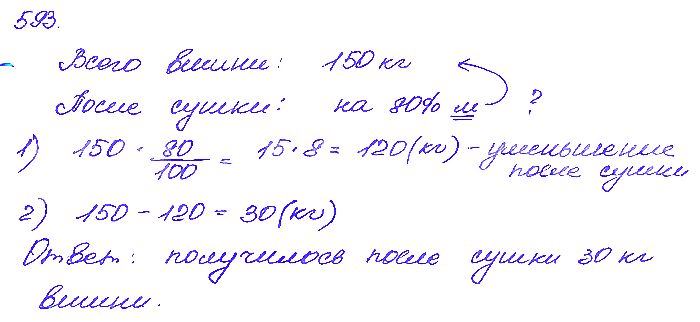 593.
Всего вишни: 150 кг
После сушки: на 80% м ?
1) 150 · 80/100 = 15 · 8 = 120 (кг) - уменьшение
после сушки
2) 150 - 120 = 30 (кг)
Ответ: получилось после сушки 30 кг
вишни.